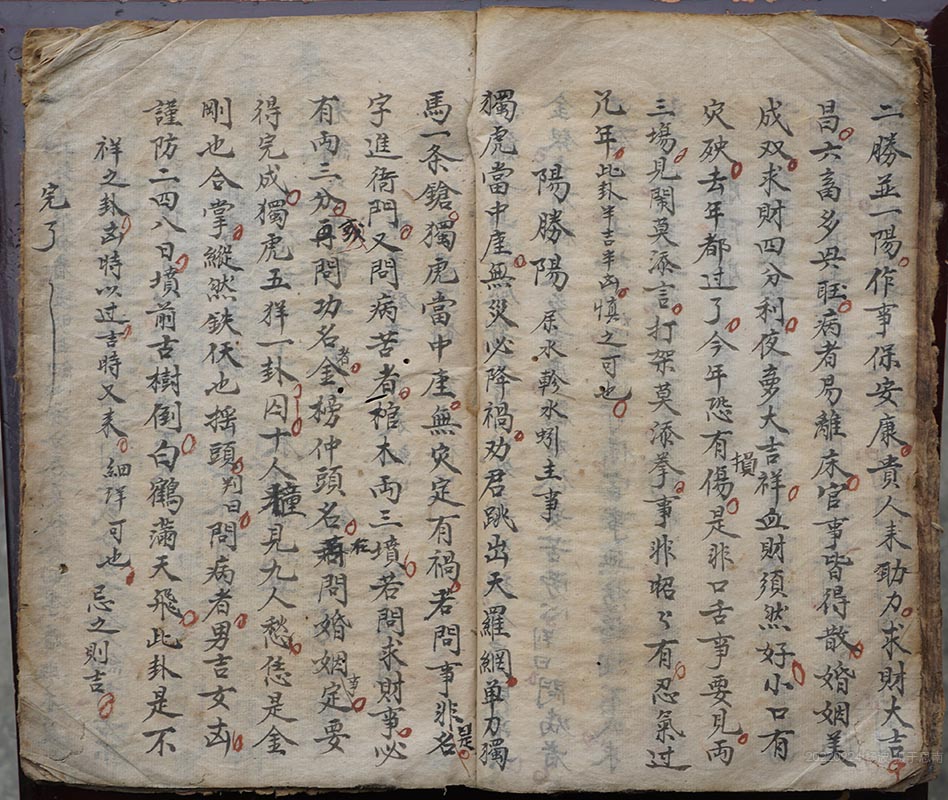 二勝並一陽作事保安康貴人来助力求財大吉
昌六畜多興旺病者易離床官事皆得散婚姻美
成双求財四分利夜夢大吉祥血財須然好小口有損
灾殃去年都过了今年恐有傷是非口舌事要見両
三塲見閑莫添言打架莫添拳事非昭々有忍氣过
几年此卦半吉半凶慎之可也
陽勝陽 尿水軫水蚓主事
獨虎當中座無災必降禍劝君跳出天羅網单刀獨
馬一条鎗獨虎當中座無灾定有禍若問事非是名
字進衙門又問病苦者棺木両三墳若問求財事必
有両三分再問功名者金榜仲頭名在若問婚姻事定要
得完成獨虎五猂一卦囚十人見九人愁恁是金
剛也合掌縱然鈌伏也摇頭判曰問病者男吉女凶
謹防二四八日墳前古樹倒白鶴滿天飛此卦是不
祥之卦凶時以过吉時又来細詳可也忌之則吉
完了